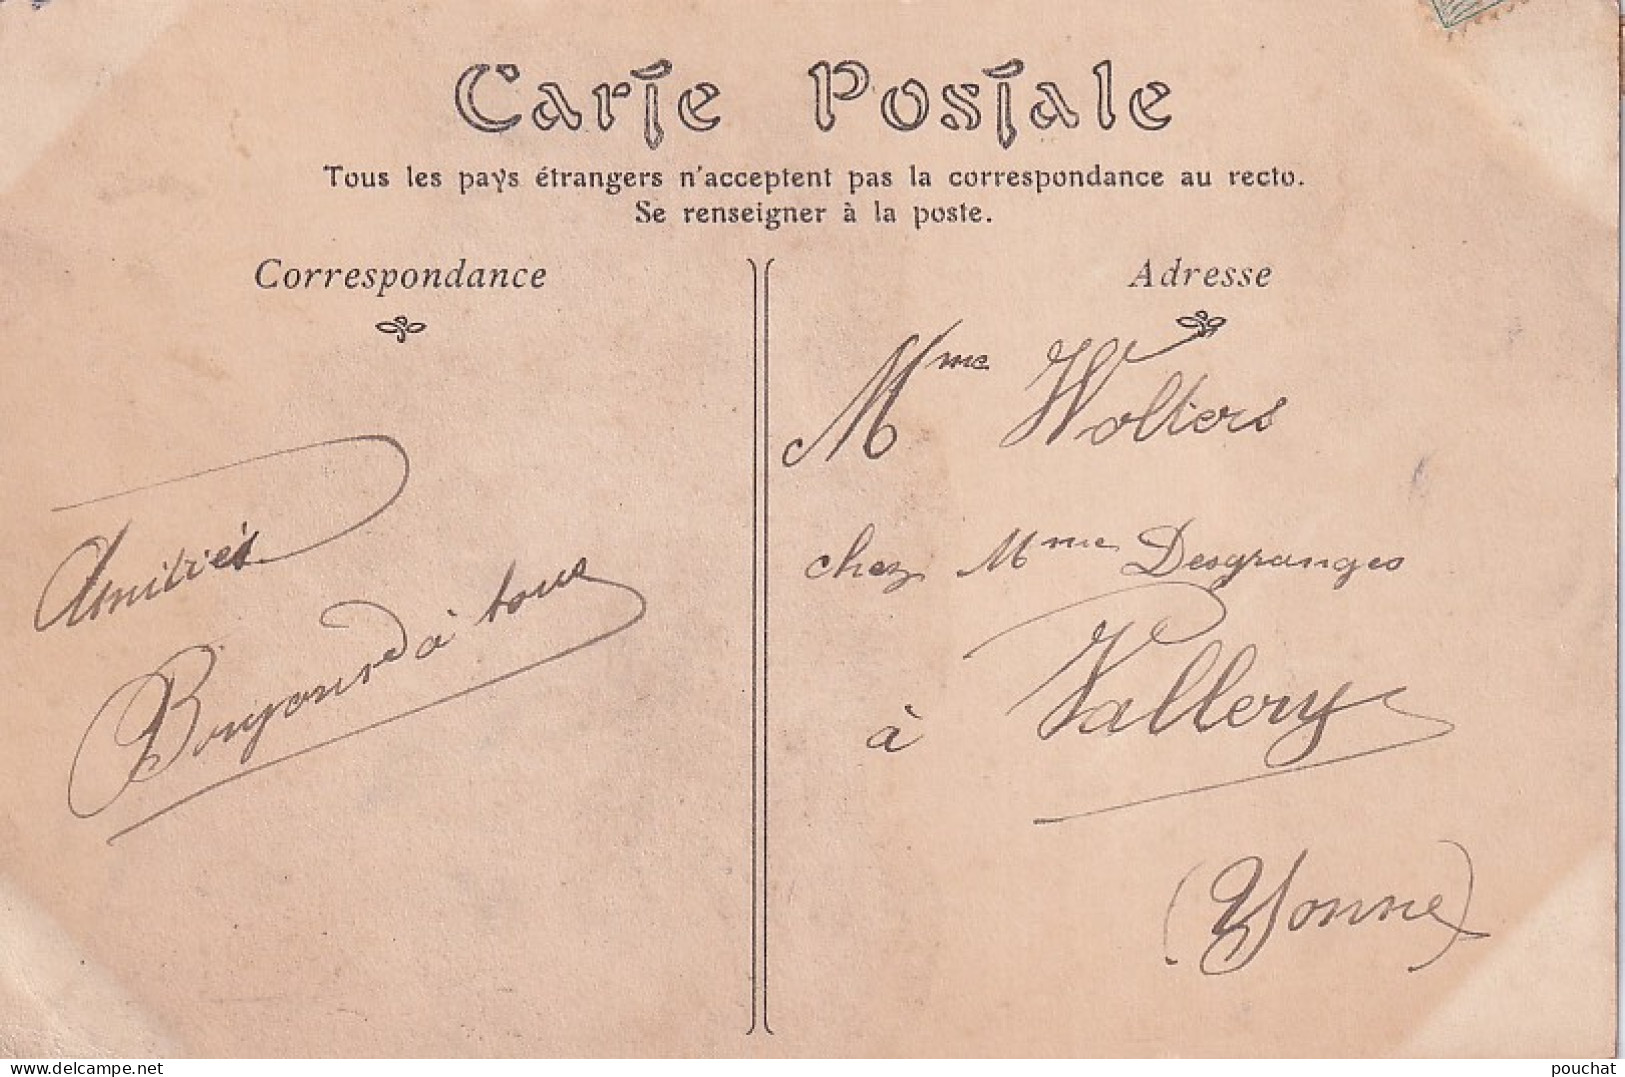 Carte Postale
Tous les pays étrangers n'acceptent pas la correspondance au recto.
Se renseigner à la poste.
Correspondance
Amitiés
Bonjour à tous
Adresse
Mme Wolters
chez Mme Desgranges
à Vallery
(Yonne)
delcampe.net
pouchat